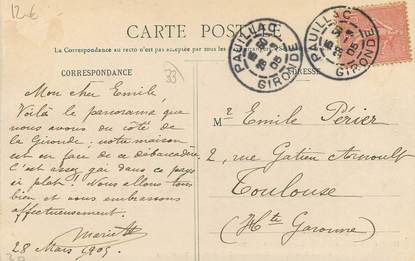 12 €
CARTE POSTALE
La Correspondance au recto n'est pas acceptée par tous les
CORRESPONDANCE
ADRESSE
33
PAUILLAC
28 05
GIRONDE
PAUILLAC
28 05
GIRONDE
Mon cher Emile,
Voilà le panorama que
nous avons du côté de
la Gironde; notre maison
est en face de ce débarcadère.
C'est assez gai dans ce pays
si plat! Nous allons tous
bien et vous embrassons
affectueusement.
28 Mars 1905
Mr Emile Périer
2, rue Gatien Arnoult
Toulouse
(Hte Garonne)